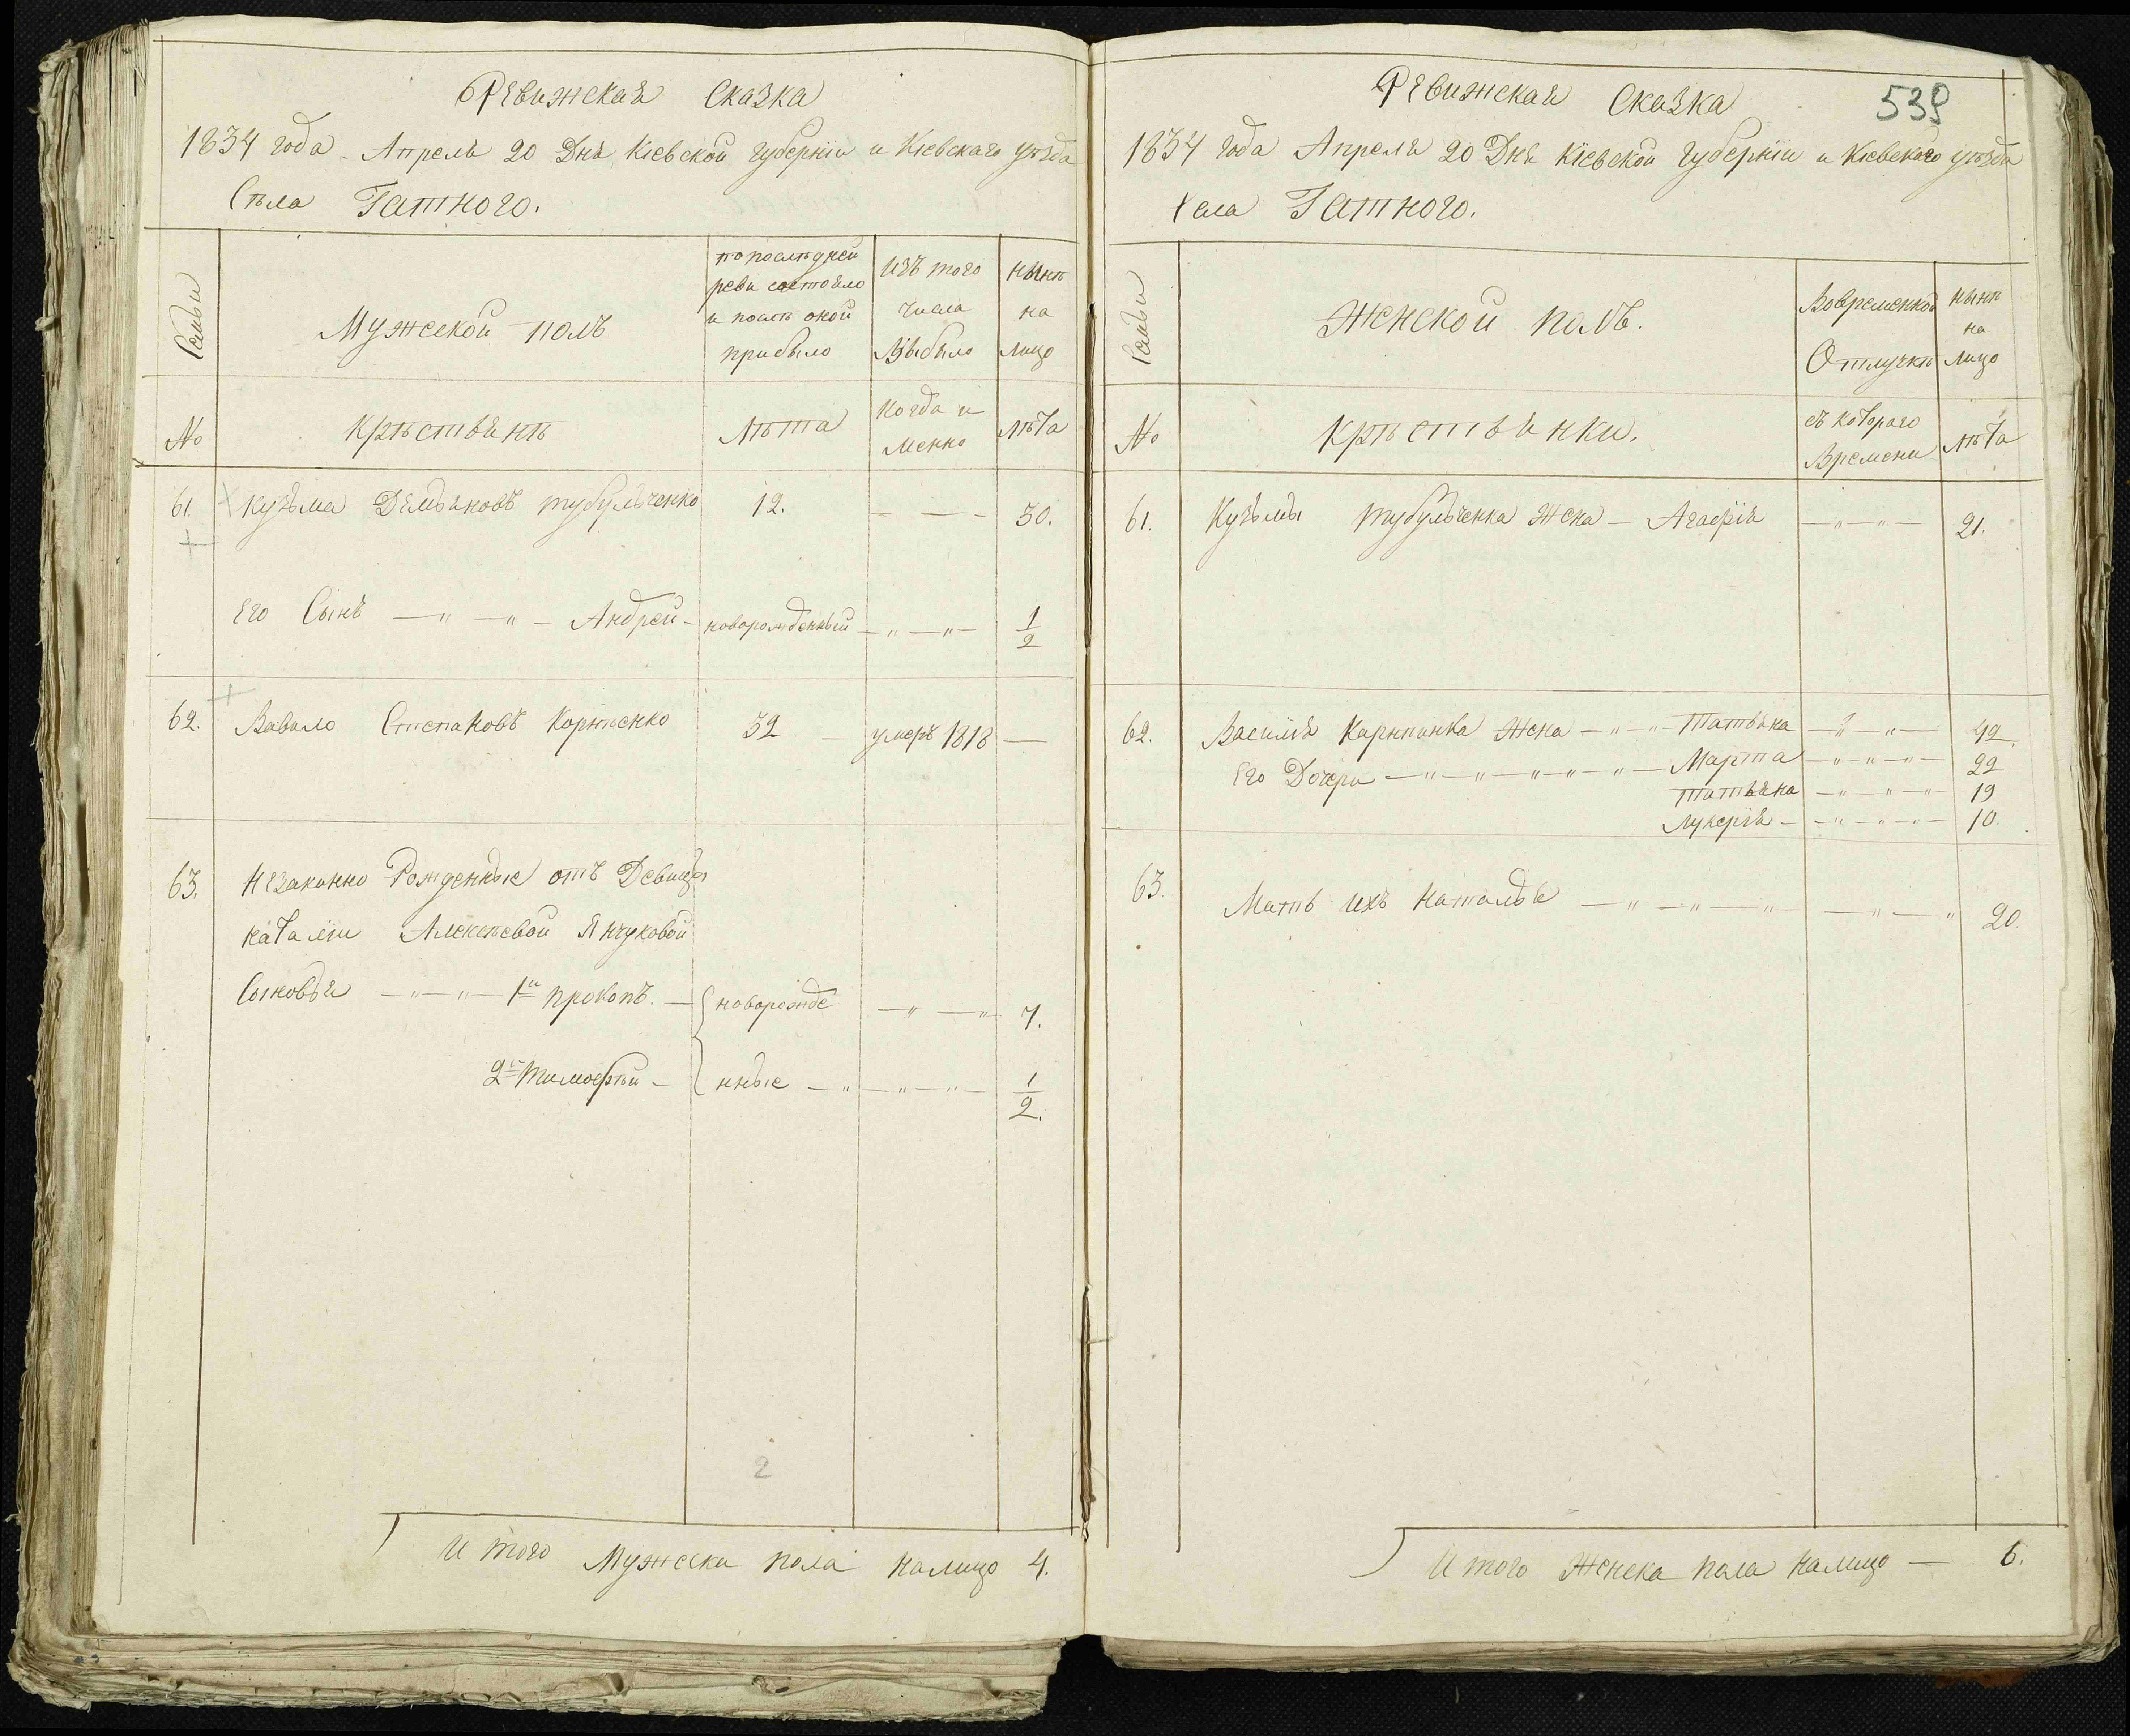 Ревижская Сказка
1834 года Апреля 20 Дня Кіевской губерніи и Кіевскаго уѣзда
Сѣла Гатного.
Семьи
Мужеской полъ
по послѣдней
реви состояло
и послѣ оной
прибыло
Изъ того
числа
Выбыло
нынѣ
на
лицо
№
Крѣстьянѣ
Лѣта
Когда и
менно
лѣта
61. Кузьма Демьяновъ Тубульченко 12. - - - 30.
Его Сынъ — " — " — Андрей - новорожденный — " — " — 1/2
62. Вавило Степановъ Корнѣенко 32 — умеръ 1818 —
63. Незаконно Рожденные отъ Девицы
Наталіи Алексѣевой Янчуковой
Сыновья — " — " — 1й Прокопъ. — новорожде — " — " — 7.
2й Тимофѣй — нные — " — " — " — 1/2.
2
И того Мужеска пола налицо 4.
Ревижская Сказка
539
1834 года Апреля 20 Дня Кіевской Губерніи и Кіевского уѣзда
Села Гатного.
Семьи
Женской полъ.
Вовременной
Отлучкѣ
нынѣ
на
лицо
№
Крѣстьянки.
съ которого
Времени
лѣта
61. Кузьмы Тубульченка Жена — Агафія — " — " — 21.
62. Василія Карнѣинка Жена — " — " — Татьяна — " — " — 42.
Его Дочери — " — " — " — " — " — Марта — " — " — " — 22
Татьяна — " — " — " — 19
Лукерія — — " — " — " — 10.
63. Мать ихъ Наталья — " — " — " — " — " 20.
И того Женска пола налицо — 6.